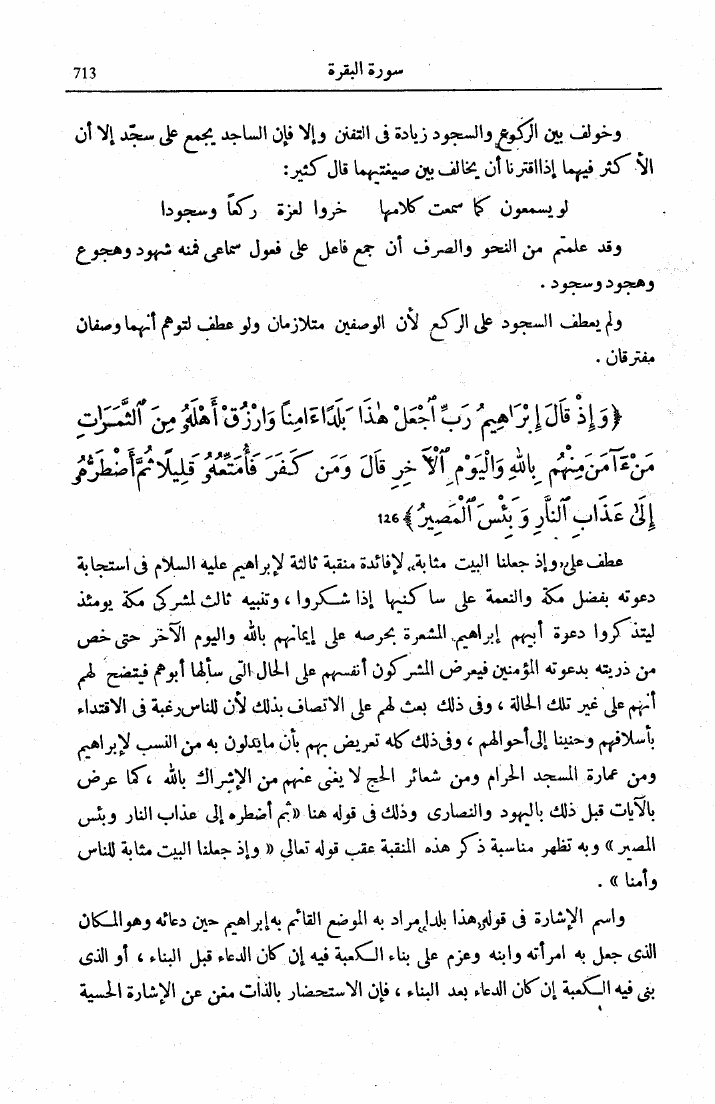 سورة البقرة
713
وخولف بين الركوع والسجود زيادة فى التفنن وإلا فإن الساجد يجمع على سجّد إلا أن
الأكثر فيهما إذا اقترنا أن يخالف بين صيغتيهما قال كثير:
لو يسمعون كما سمعت كلامها خروا لعزة ركعاً وسجودا
وقد علمتم من النحو والصرف أن جمع فاعل على فعول سماعى فمنه شهود وهجوع
وهجود وسجود .
ولم يعطف السجود على الركع لأن الوصفين متلازمان ولو عطف لتوهم أنهما وصفان
مفترقان .
﴿وَإِذْ قَالَ إِبْرَاهِيمُ رَبِّ ٱجْعَلْ هَٰذَا بَلَدًا ءَامِنًا وَارْزُقْ أَهْلَهُۥ مِنَ ٱلثَّمَرَٰتِ
مَنْ ءَامَنَ مِنْهُم بِاللَّهِ وَالْيَوْمِ ٱلْأَخِرِ قَالَ وَمَن كَفَرَ فَأُمَتِّعُهُۥ قَلِيلًا ثُمَّ أَضْطَرُّهُۥ
إِلَىٰ عَذَابِ ٱلنَّارِ وَبِئْسَ ٱلْمَصِيرُ﴾ 126
عطف على «وإذ جعلنا البيت مثابة» لإفائدة منقبة ثالثة لإبراهيم عليه السلام فى استجابة
دعوته بفضل مكة والنعمة على ساكنيها إذا شكروا ، وتنبيه ثالث لمشركى مكة يومئذ
ليتذكروا دعوة أبيهم إبراهيم المشعرة بحرصه على إيمانهم بالله واليوم الآخر حتى خص
من ذريته بدعوته المؤمنين فيعرض المشركون أنفسهم على الحال التى سألها أبوهم فيتضح لهم
أنهم على غير تلك الحالة ، وفى ذلك بعث لهم على الاتصاف بذلك لأن للناس رغبة فى الاقتداء
بأسلافهم وحنينا إلى أحوالهم ، وفى ذلك كله تعريض بهم بأن ما يدلون به من النسب لإبراهيم
ومن عمارة المسجد الحرام ومن شعائر الحج لا يغنى عنهم من الإشراك بالله ، كما عرض
بالآيات قبل ذلك باليهود والنصارى وذلك فى قوله هنا «ثم أضطره إلى عذاب النار وبئس
المصير» وبه تظهر مناسبة ذكر هذه المنقبة عقب قوله تعالى « وإذ جعلنا البيت مثابة للناس
وأمنا » .
واسم الإشارة فى قوله «هذا بلدا» مراد به الموضع القائم به إبراهيم حين دعائه وهو المكان
الذى جعل به امرأته وابنه وعزم على بناء الكعبة فيه إن كان الدعاء قبل البناء ، أو الذى
بنى فيه الكعبة إن كان الدعاء بعد البناء ، فإن الاستحضار بالذات مغن عن الإشارة الحسية